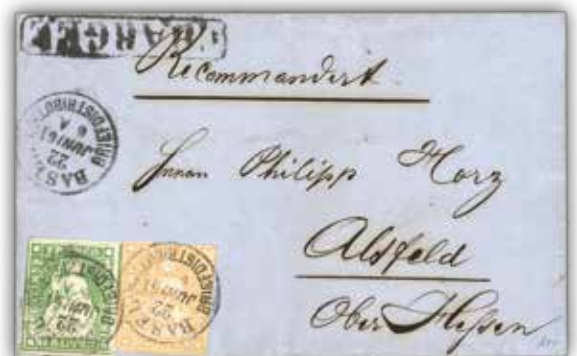 CHARGÉ
Recommandert
BASEL
22
JUNI 61
6 A
BRIEFDISTRIBUT
Herrn Philipp Horz
Alsfeld
Ober Hessen
BASEL
22
JUNI 61
BRIEFDISTRIBUT